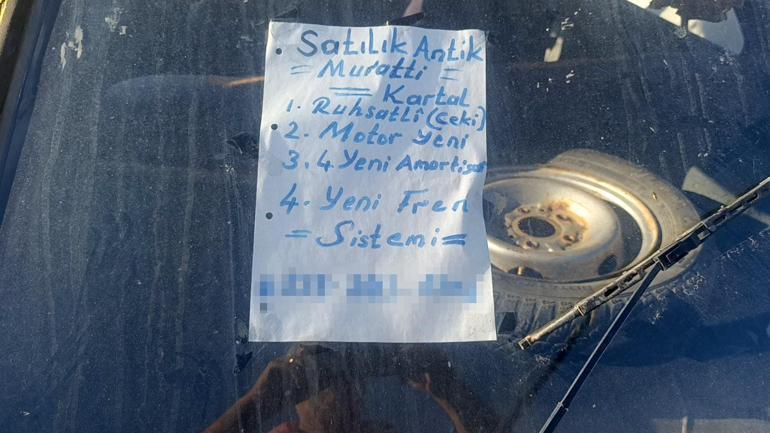 Satılık Antik
= Muratti =
= Kartal
1. Ruhsatlı (Çeki)
2. Motor Yeni
3. 4 Yeni Amortisör
4. Yeni Fren
= Sistemi =